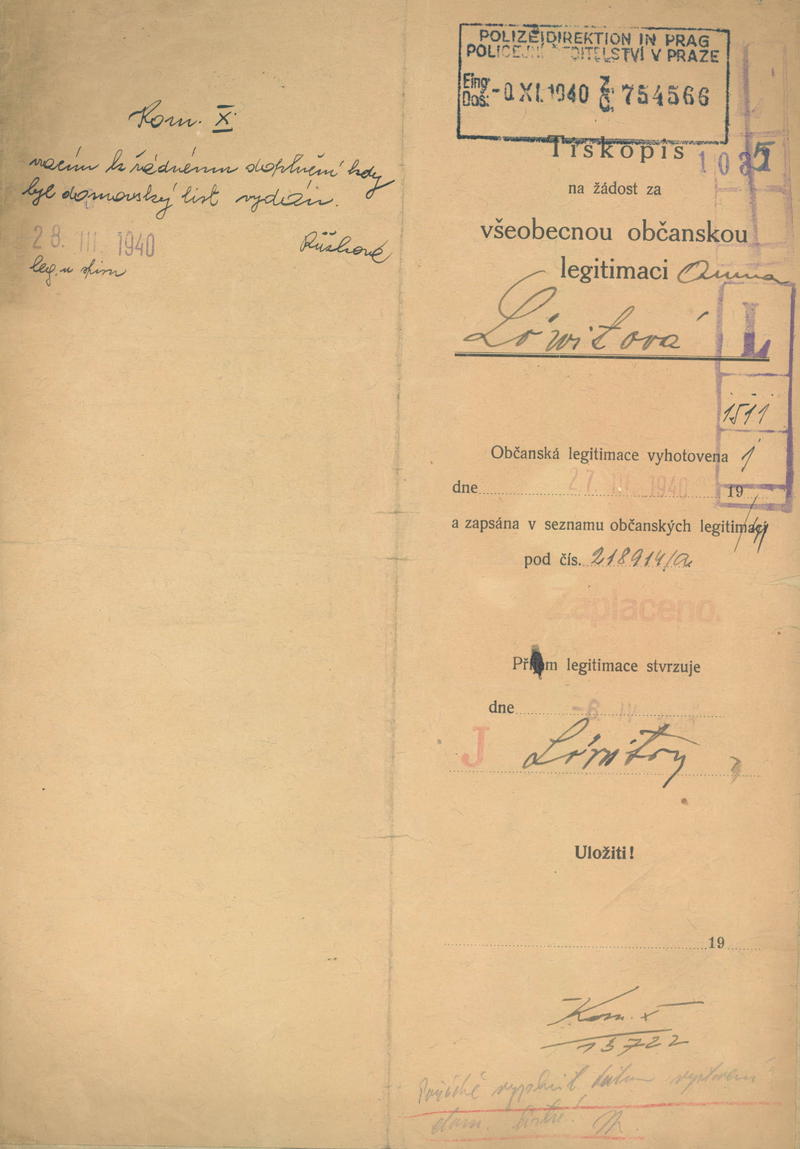 Kom. X.
vracím k řádnému doplnění kdy
byl domovský list vydán.
28. III. 1940
Růžková
leg. u
POLIZEIDIREKTION IN PRAG
POLICEJNÍ ŘEDITELSTVÍ V PRAZE
Eing.
Doš.
XI. 1940
Z.
Č.
754566
Tiskopis
103
na žádost za
všeobecnou občanskou
legitimaci Anna
Löwitová
L
1511
1
Občanská legitimace vyhotovena
dne 27. III. 1940 19
a zapsána v seznamu občanských legitimací
pod čís. 218914/a
Zaplaceno.
Příjem legitimace stvrzuje
dne -6. IV.
J
Uložiti!
19
Kom. X
15722
vyplnit datum vystavení
dom.